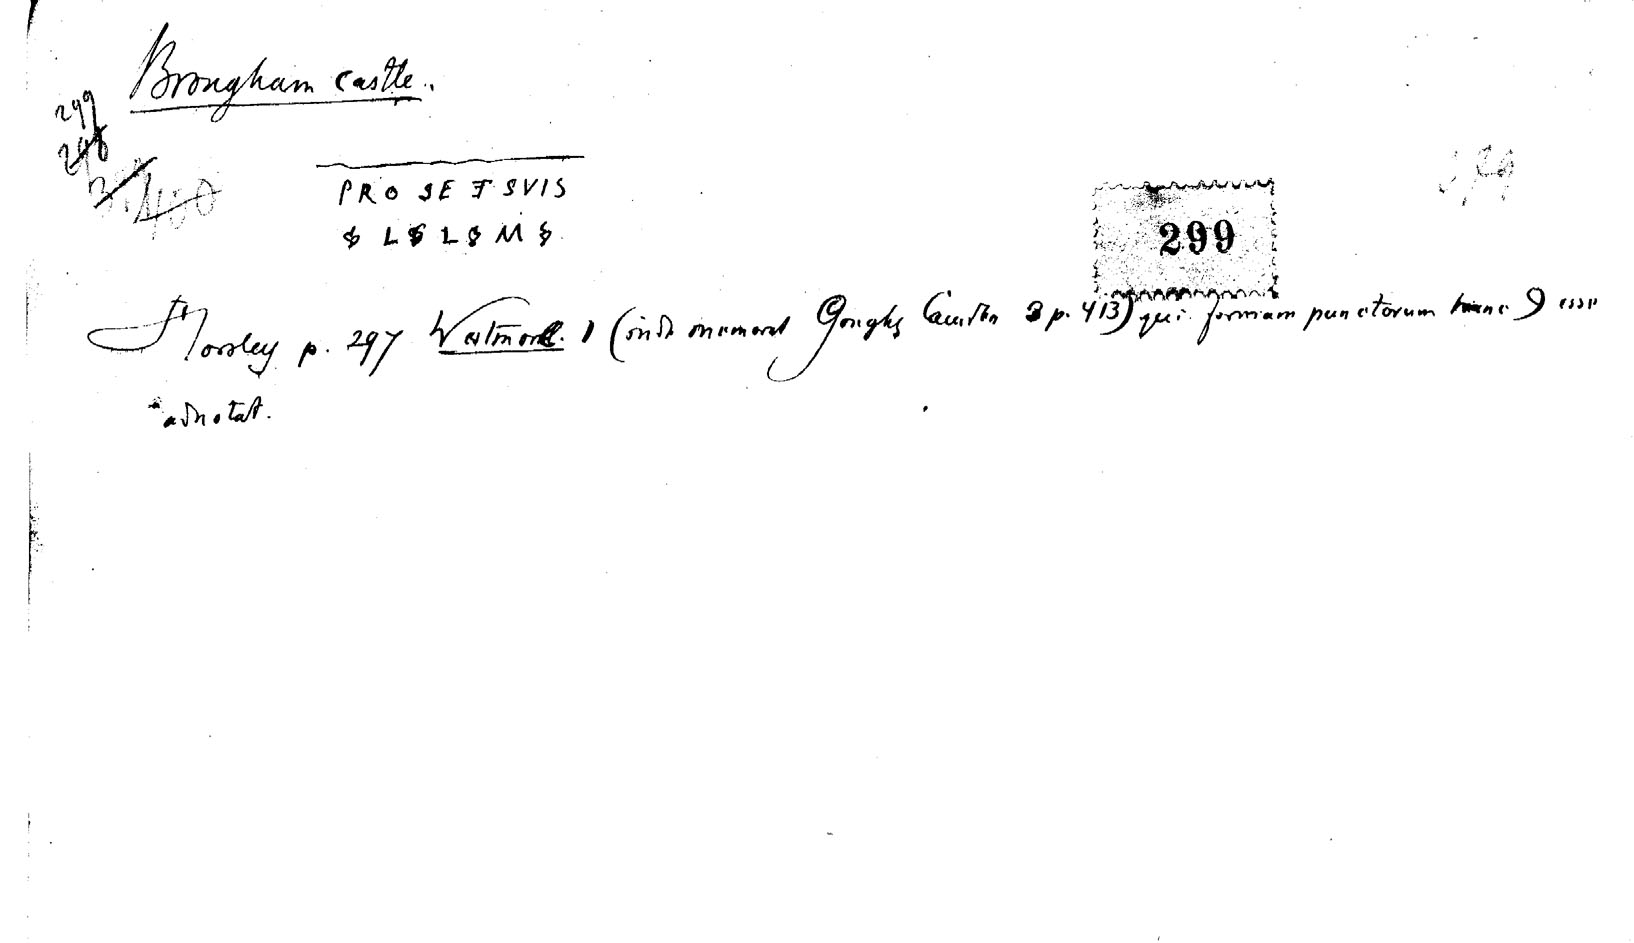 Brougham castle.
299
298
400
PRO SE ET SVIS
𐆖 L 𐆖 L 𐆖 M 𐆖
299
Horsley p. 297 Westmorel. 1 (inde memorat Goughs Camden 3 p. 413) qui formam punctorum hanc esse
adnotat.